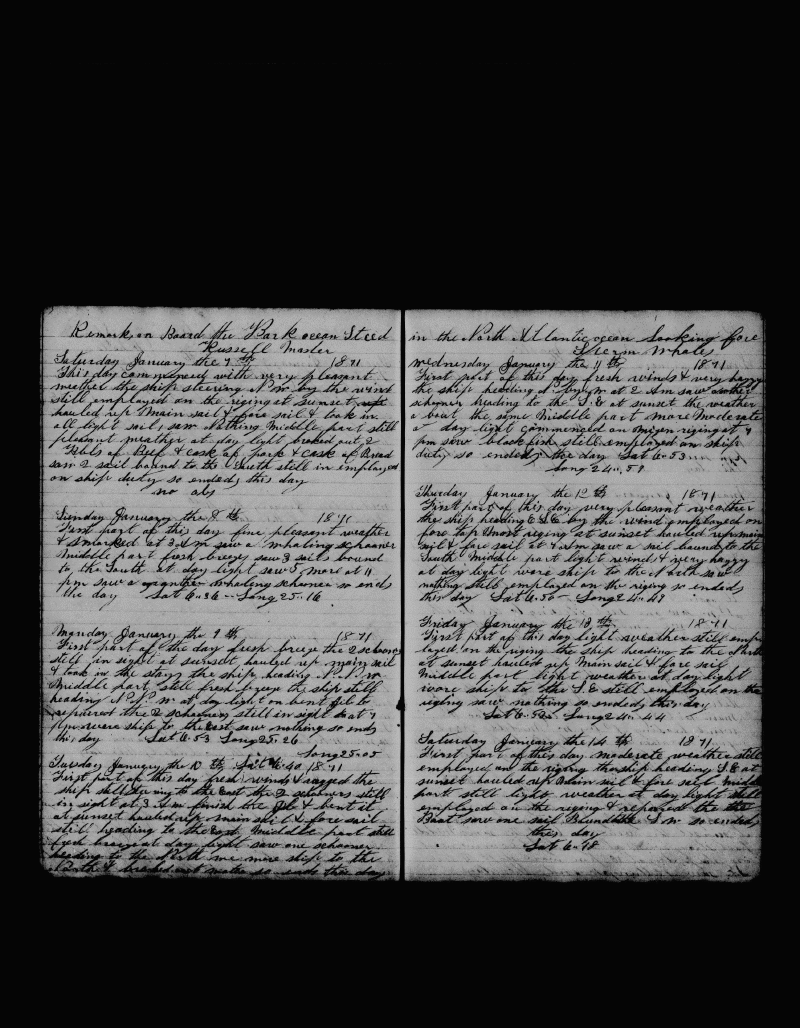 Remarks on Board the Bark ocean Steed
Russell Master
Saturday January the 7 th 1871
This day commences with very pleasant
wether the ship steering N. W by the wind
still employed on the riging at sunset
hauled up Main sail & fore sail & took in
all light sails saw Nothing Middle part still
pleasant weather at day light broked out 2
Bbls of Beef & cask of pork & cask of Bread
saw 2 sail bound to the South still in employed
on ship duty so ended this day
no obs
Sunday January the 8 th 1871
First part of this day fine pleasant weather
& smoked at 3 P.m saw a whaling schooner
Middle part fresh breezes saw 3 sails bound
to the South at day light saw 5 more at 11
pm saw a whaling schooner so ends
the day Lat 6..36 -- Long 25..16
Monday January the 9 th 1871
First part of the day fresh breeze the 2 schooners
still in sight at sunset hauled up main sail
& took in the stays the ship heading N. N. W
Middle part still fresh breeze the ship still
heading N. N. W at day light on bent jib to
repair it the 2 schooners still in sight at 7
pm wore ship to the east saw nothing so ends
this day Lat 6..53 Long 25..26
Long 25..05
Tuesday January the 10 th Lat 6..40 1871
First part of this day fresh winds & raged the
ship still steering to the East the 2 schooners still
in sight at 3 A.m finish the jib & bent it
at sunset hauled up main sail & fore sail
still heading to the East Middle part still
fresh breeze at day light saw one schooner
heading to the North we wore ship to the
North & so ends this day
in the North Atlantic ocean Looking fore
Sperm Whales
Wednesday January the 11 th 1871
First part of this day fresh winds & very hazy
the ship heading at by N at 2 A.m saw another
schooner heading to the S. E at sunset the weather
a bout the same Middle part more Moderate
a day light commenced on Mizen riging at 4
pm saw blackfish still employed on ship
duty so ended the day Lat 6..53
Long 24..51
Thursday January the 12 th 1871
First part of this day very pleasant weather
the ship heading E. S. E by the wind employed on
fore top Mast riging at sunset hauled up main
sail & fore sail at 4 A.m saw a sail bound to the
South Middle part light winds & very hazy
at day light wore ship to the North saw
nothing still employed on the riging so ended
this day Lat 6..50 -- Long 24..47
Friday January the 13 th 1871
First part of this day light weather still emp
loyed on the riging the ship heading to the North
at sunset hauled up Main sail & fore sail
Middle part light weather at day light
wore ship to the S. E still employed on the
riging saw nothing so ended this day
Lat 6..52 -- Long 24..44
Saturday January the 14 th 1871
First part of this day moderate weather still
employed on the riging the ship heading S. E at
sunset hauled up Main sail & fore sail Middle
part still light weather at day light still
employed on the riging & repared the
Boat saw one sail Bound the S W so ended
this day
Lat 6..18